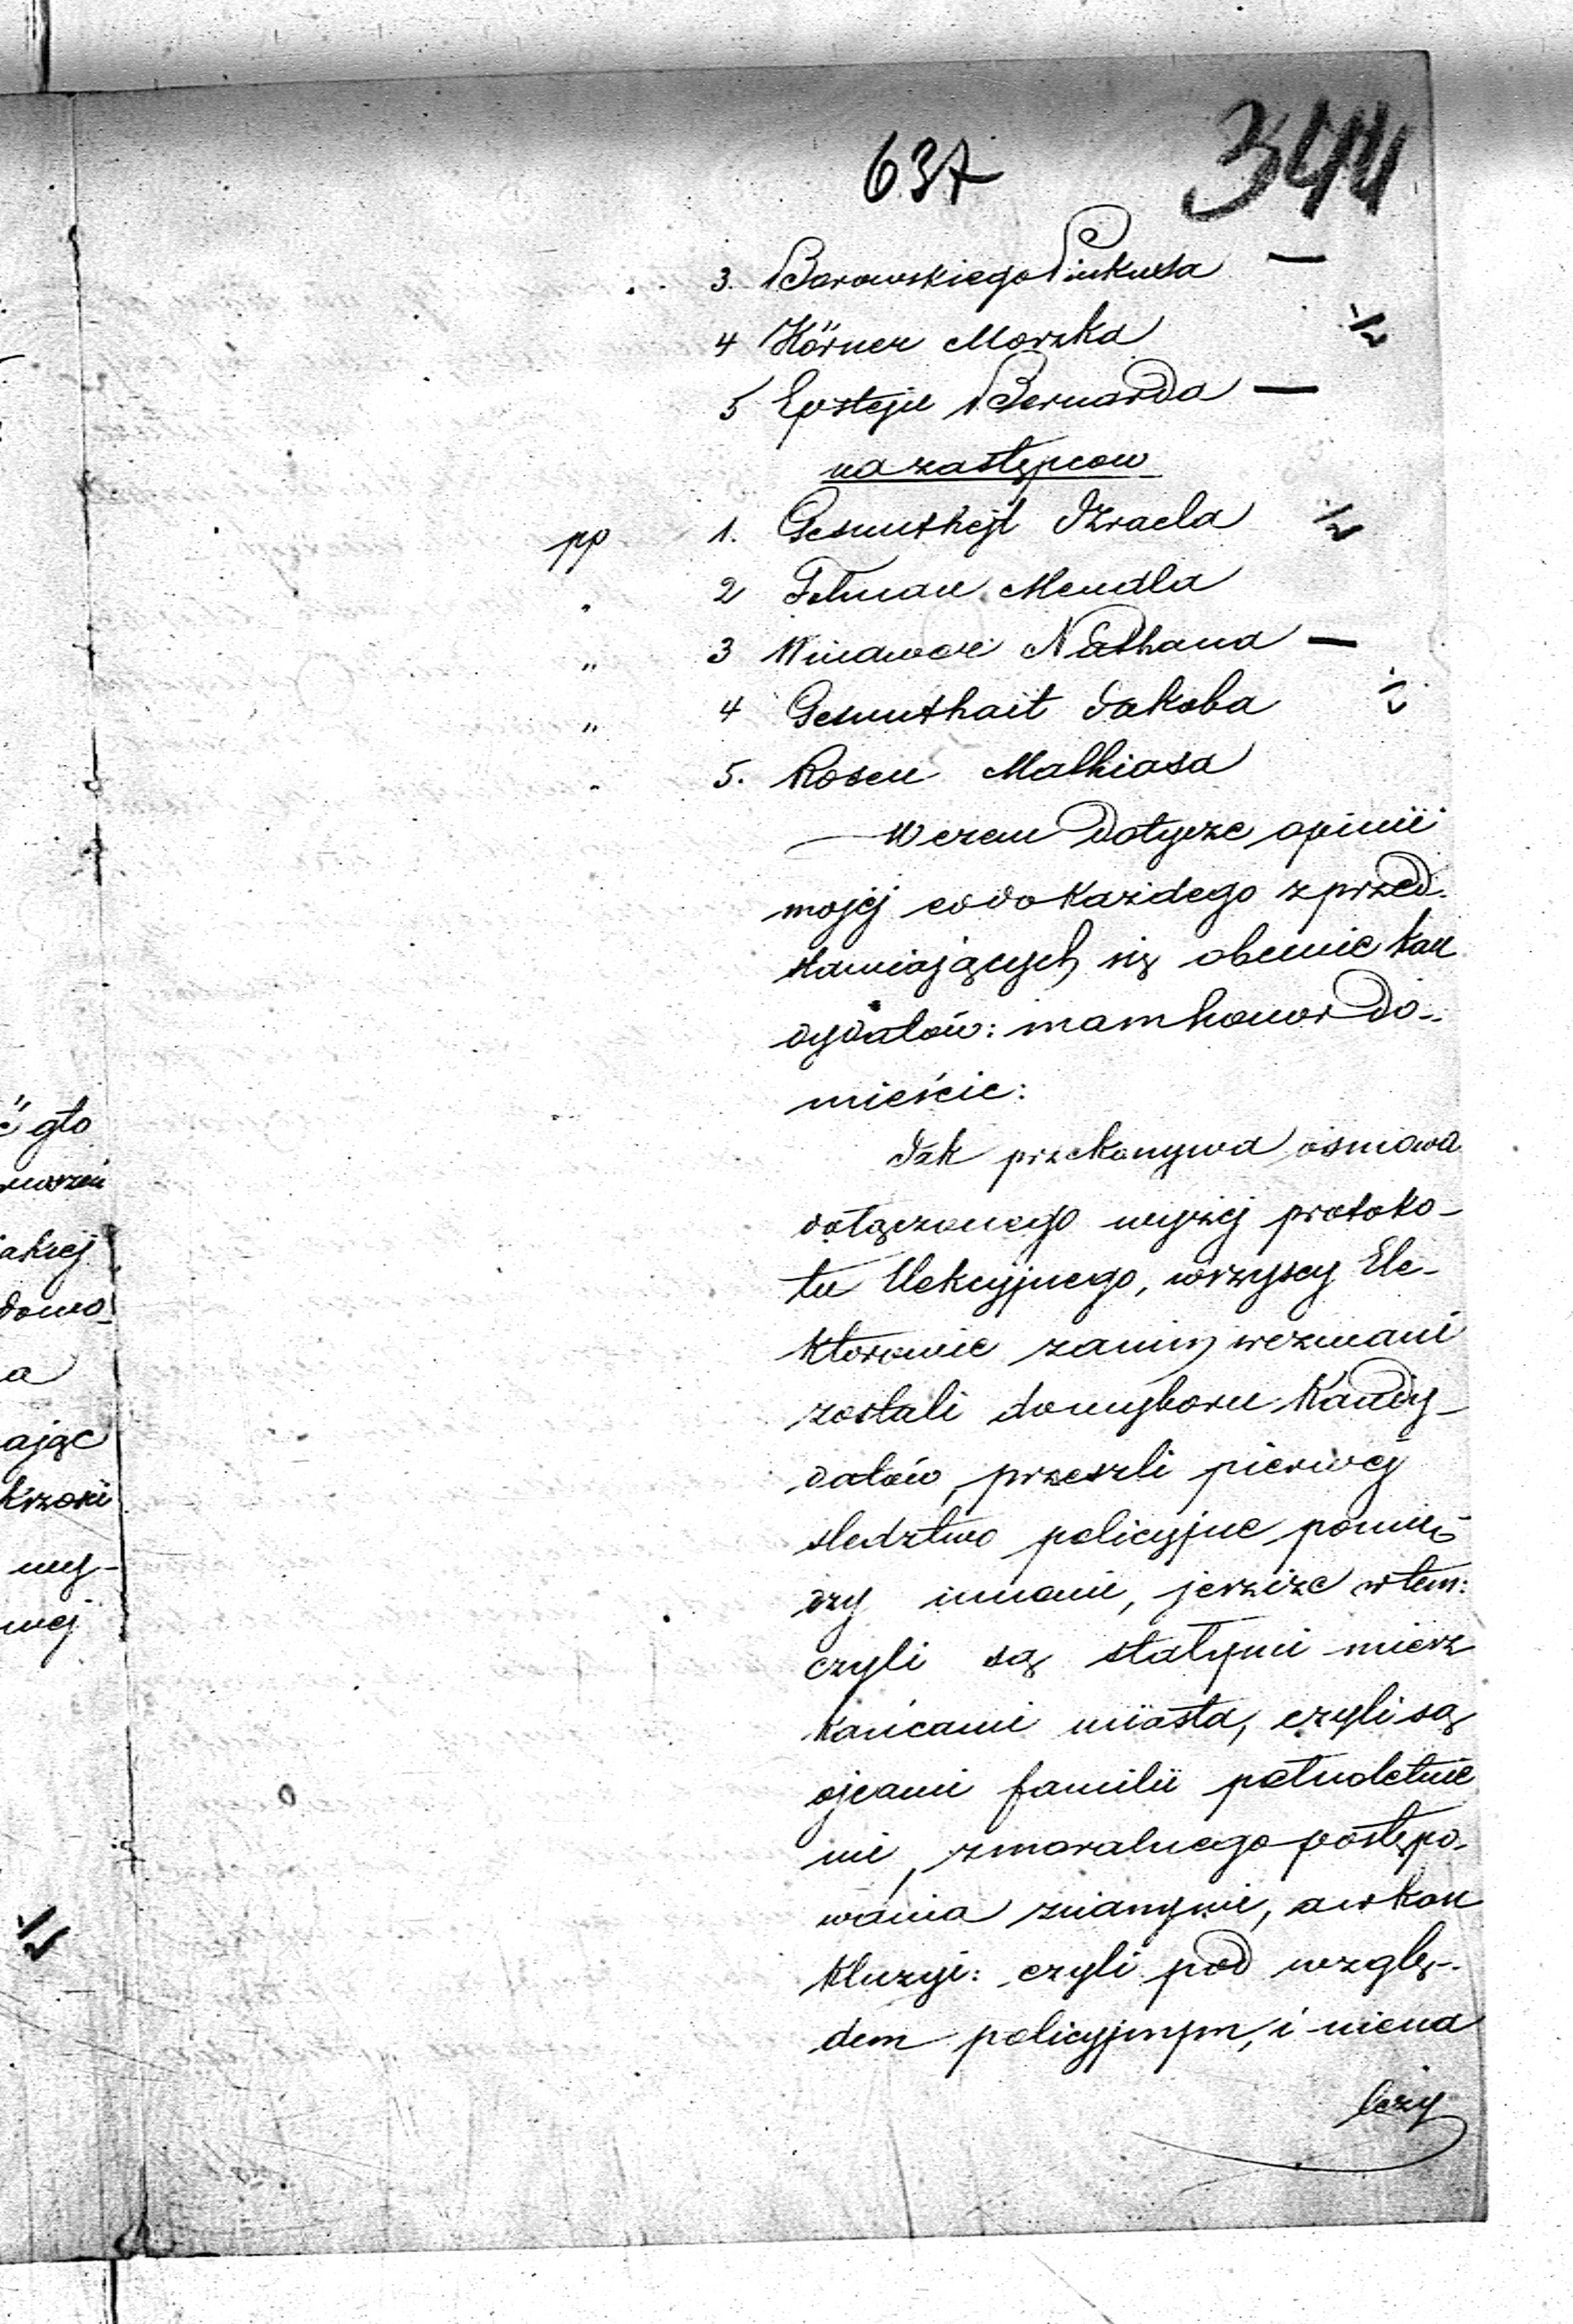 637 344
3. Barowskiego Pinkusa —
4 Körner Moszka
5 Epstejn Bernarda —
na zastępców
pp 1. Gesunthejt Izraela
2 Felman Mendla
" 3 Winawer Nathana —
" 4 Gesunthait Jakoba
5. Rosen Mathiasa
— W czem dotycze opinii
mojéj codo Każdego z przed-
stawiających się obecnie kan
dydatów: mam honor do-
mieścic:
Jak przekonywa osnowa
dołączonego wyżej protoko-
łu Elekcyjnego, wszyscy Ele-
ktorowie zanim wezwani
zostali do wyboru Kandy-
datów, przeszli pierwej
sledztwo policyjne pomię
dzy innemi, jeszcze w tem:
czyli są stałymi miesz
kańcami miasta, czyli są
ojcami familii pełnoletnie
mi, z moralnego postępo-
wania znanymi, a w kon
kluzyi: czyli pod wzglę-
dem policyjnym, i niena
leży
gło
akiej
domo
a
ając
wy-
wej